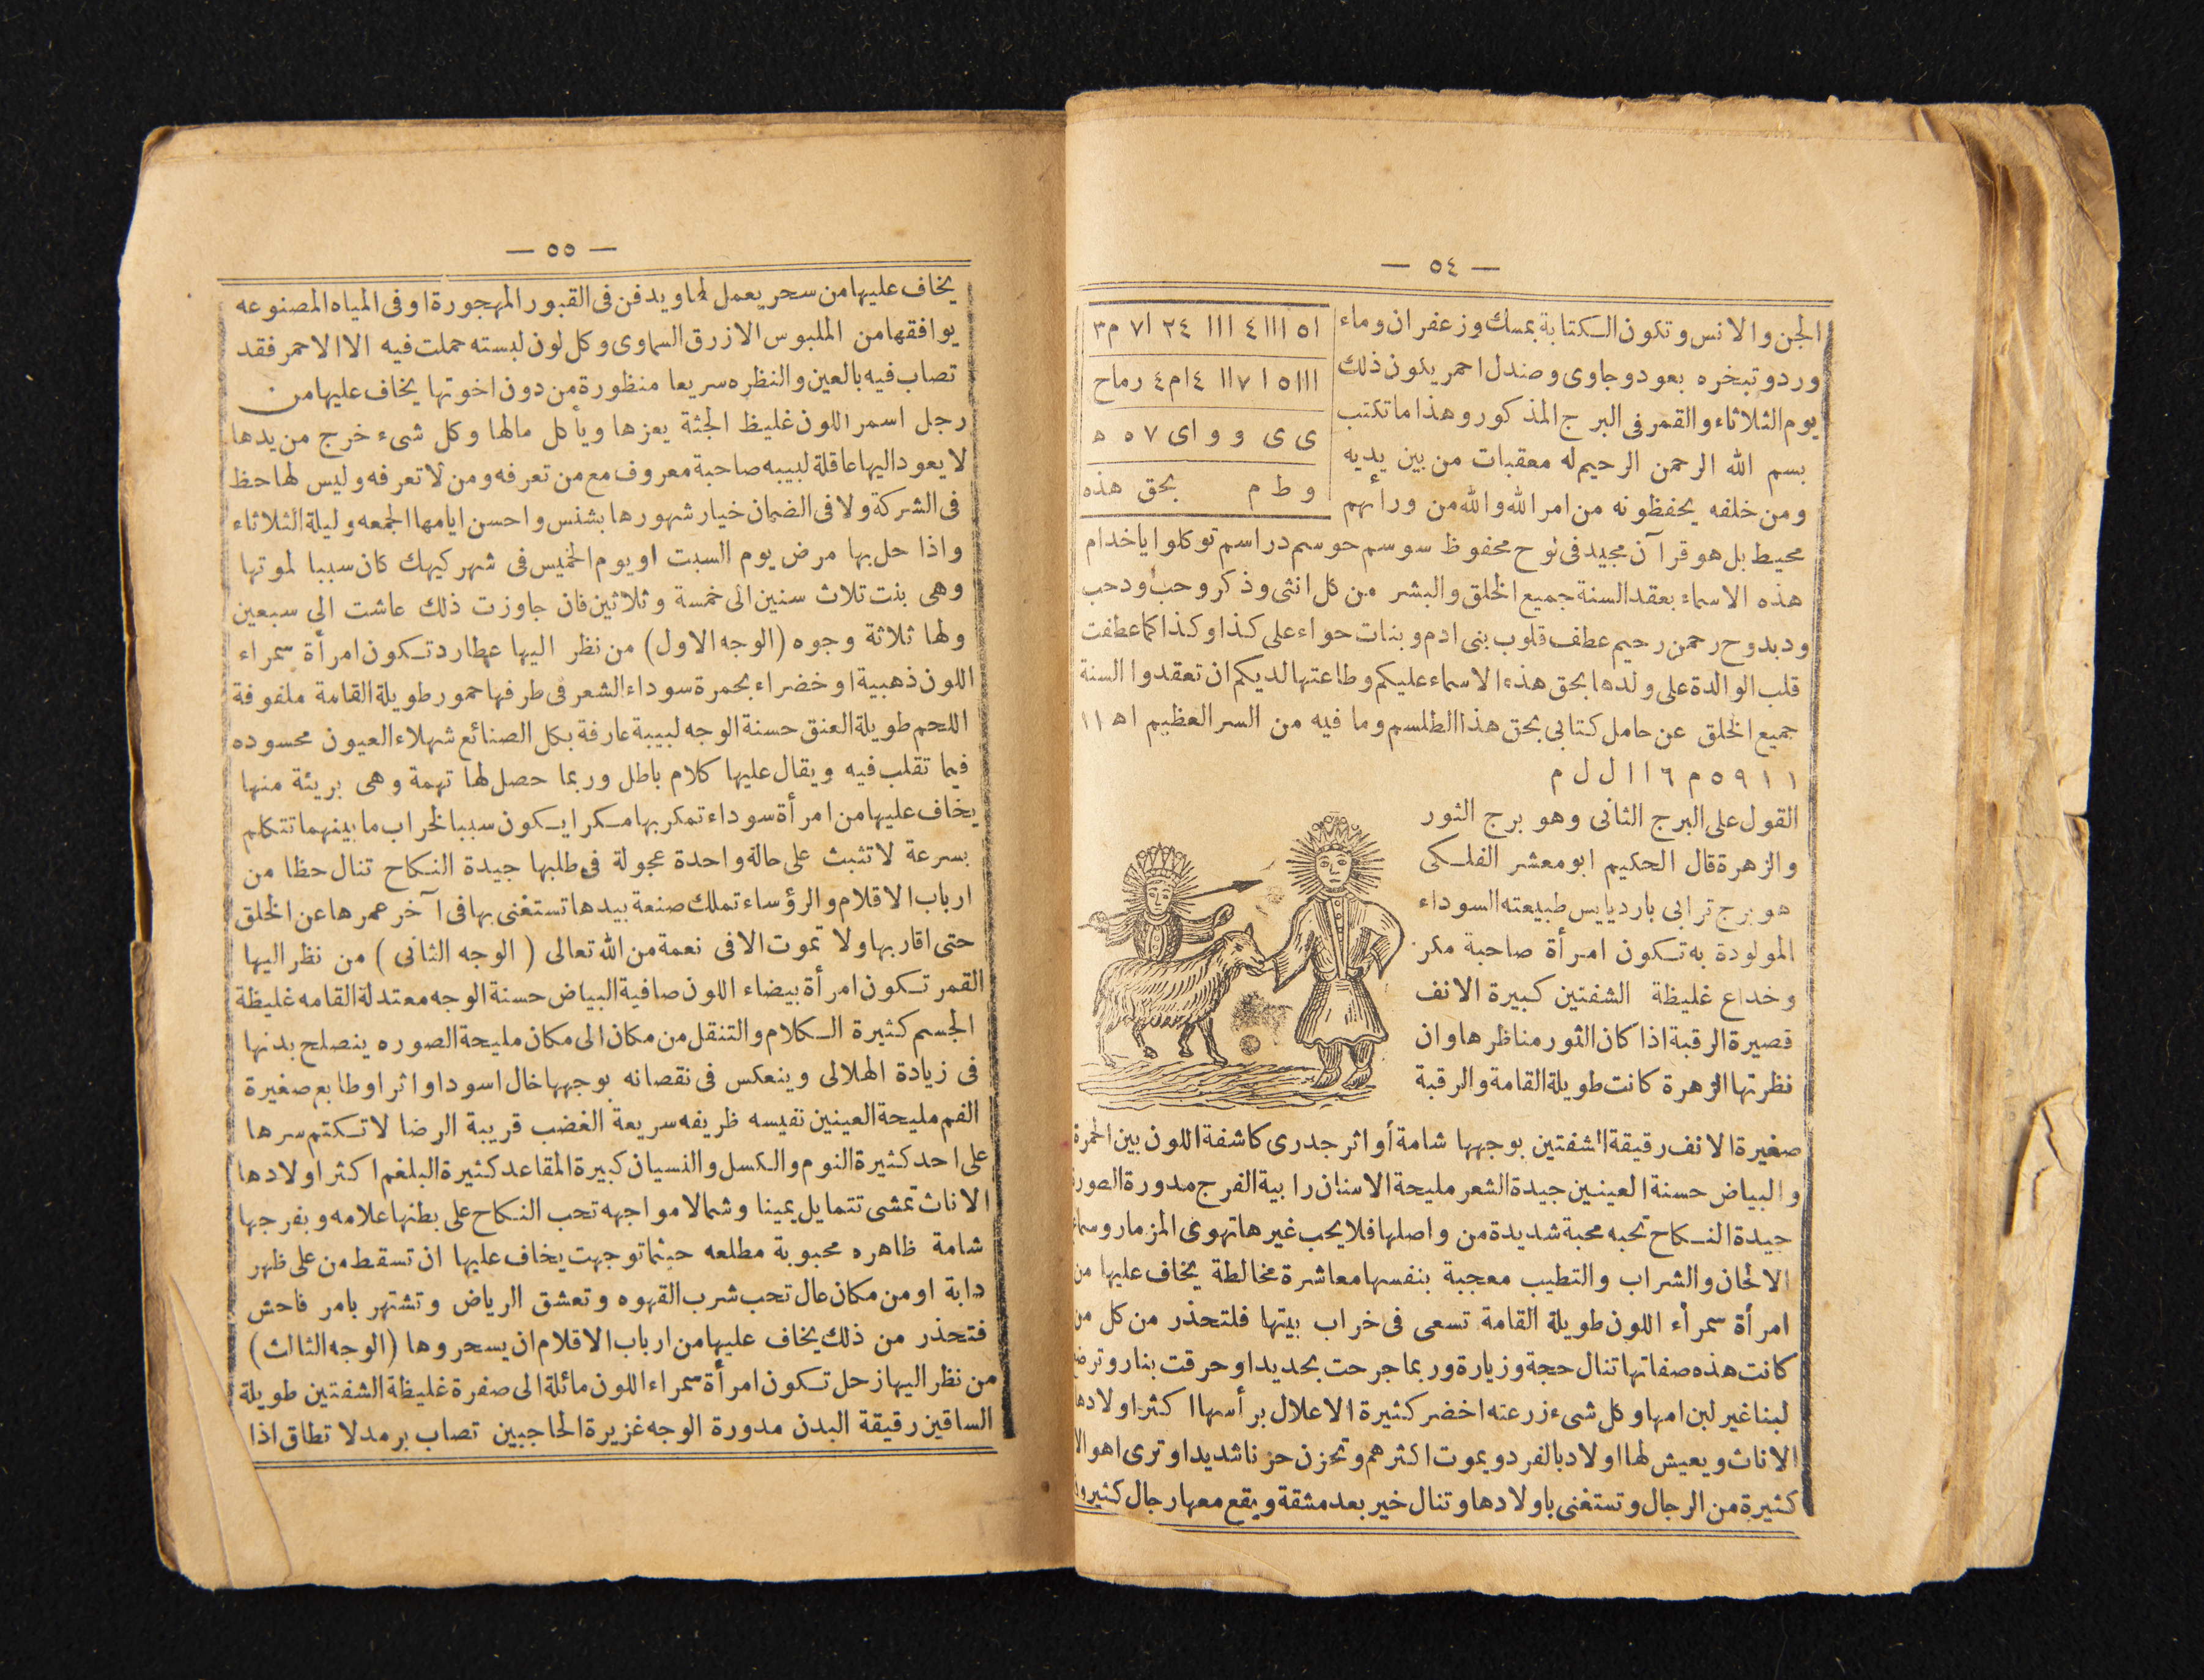 — ٥٤ —
الجن والانس وتكون الكتابة بمسك وزعفران وماء
ورد وتبخره بعود وجاوى وصندل احمر يكون ذلك
يوم الثلاثاء والقمر فى البرج المذكور وهذا ما تكتب
بسم الله الرحمن الرحيم له معقبات من بين يديه
ومن خلفه يحفظونه من امر الله والله من ورائهم
ا٥ ااا٤ ااا ٢٤ ا٧ م٣
ااا٥ ا ٧اا ٤ام٤ رماح
ى ى و و اى ٧ ٥ ه
و ط م بحق هذه
محيط بل هو قرآن مجيد فى لوح محفوظ سوسم حوسم دراسم توكلوا ياخدام
هذه الاسماء بعقد السنة جميع الخلق والبشر من كل انثى وذكر وحب ودحب
ودبدوح رحمن رحيم عطف قلوب بنى ادم وبنات حواء على كذا وكذا كما عطفت
قلب الوالدة على ولدها بحق هذه الاسماء عليكم وطاعتها لديكم ان تعقدوا السنة
جميع الخلق عن حامل كتابى بحق هذا الطلسم وما فيه من السر العظيم اه ١١
١ ١ ٩ ٥ م ٦ ا ا ل ل م
القول على البرج الثانى وهو برج الثور
والزهرة قال الحكيم ابو معشر الفلكى
هو برج ترابى بارد يابس طبيعته السوداء
المولودة به تكون امرأة صاحبة مكر
وخداع غليظة الشفتين كبيرة الانف
قصيرة الرقبة اذا كان الثور مناظرها وان
نظرتها الزهرة كانت طويلة القامة والرقبة
صغيرة الانف رقيقة الشفتين بوجهها شامة أو اثر جدرى كاشفة اللون بين الحمرة
والبياض حسنة العينين جيدة الشعر مليحة الاسنان رابية الفرج مدورة الصورة
جيدة النكاح تحبه محبة شديدة من واصلها فلا يحب غيرها تهوى المزمار وسماع
الالحان والشراب والتطيب معجبة بنفسها معاشرة مخالطة يخاف عليها من
امرأة سمرأء اللون طويلة القامة تسعى فى خراب بيتها فلتحذر من كل من
كانت هذه صفاتها تنال حجة وزيارة وربما جرحت بحديد او حرقت بنار وترضع
لبنا غير لبن امها وكل شىء زرعته اخضر كثيرة الاعلال برأسها اكثر اولادها
الاناث ويعيش لها اولاد بالفرد ويموت اكثرهم وتحزن حزنا شديدا وترى اهوالا
كثيرة من الرجال وتستغنى باولادها وتنال خير بعد مشقة ويقع معها رجال كثيرون
— ٥٥ —
يخاف عليها من سحر يعمل لها ويدفن فى القبور المهجورة او فى المياه المصنوعه
يوافقها من الملبوس الازرق السماوى وكل لون لبسته حملت فيه الا الاحمر فقد
تصاب فيه بالعين والنظره سريعا منظورة من دون اخوتها يخاف عليها من
رجل اسمر اللون غليظ الجثة يعزها ويأكل مالها وكل شىء خرج من يدها
لا يعود اليها عاقلة لبيبه صاحبة معروف مع من تعرفه ومن لا تعرفه وليس لها حظ
فى الشركة ولا فى الضمان خيار شهورها بشنس واحسن ايامها الجمعه وليلة الثلاثاء
واذا حل بها مرض يوم السبت او يوم الخميس فى شهر كيهك كان سببا لموتها
وهى بنت تلاث سنين الى خمسة وثلاثين فان جاوزت ذلك عاشت الى سبعين
ولها ثلاثة وجوه (الوجه الاول) من نظر اليها عطارد تكون امرأة سمراء
اللون ذهبية او خضراء بحمرة سوداء الشعر فى طرفها حمور طويلة القامة ملفوفة
اللحم طويلة العنق حسنة الوجه لبيبة عارفة بكل الصنائع شهلاء العيون محسوده
فيما تقلب فيه ويقال عليها كلام باطل وربما حصل لها تهمة وهى بريئة منها
يخاف عليها من امرأة سوداء تمكر بها مكرا يكون سببا لخراب ما بينهما تتكلم
بسرعة لا تثبث على حالة واحدة عجولة فى طلبها جيدة النكاح تنال حظا من
ارباب الاقلام والرؤساء تملك صنعة بيدها تستغنى بها فى آخر عمرها عن الخلق
حتى اقاربها ولا تموت الا فى نعمة من الله تعالى ( الوجه الثانى ) من نظر اليها
القمر تكون امرأة بيضاء اللون صافية البياض حسنة الوجه معتدلة القامه غليظة
الجسم كثيرة الكلام والتنقل من مكان الى مكان مليحة الصوره ينصلح بدنها
فى زيادة الهلالى وينعكس فى نقصانه بوجهها خال اسود او اثر او طابع صغيرة
الفم مليحة العينين نفيسه ظريفه سريعة الغضب قريبة الرضا لا تكتم سرها
على احد كثيرة النوم والكسل والنسيان كبيرة المقاعد كثيرة البلغم اكثر اولادها
الاناث تمشى تتمايل يمينا وشمالا مواجهه تحب النكاح على بطنها علامه وبفرجها
شامة ظاهره محبوبة مطلعه حيثما توجهت يخاف عليها ان تسقط من على ظهر
دابة او من مكان عال تحب شرب القهوه وتعشق الرياض وتشتهر بامر فاحش
فتحذر من ذلك يخاف عليها من ارباب الاقلام ان يسحروها (الوجه الثالث)
من نظر اليها زحل تكون امرأة سمراء اللون مائلة الى صفرة غليظة الشفتين طويلة
الساقين رقيقة البدن مدورة الوجه غزيرة الحاجبين تصاب برمد لا تطاق اذا